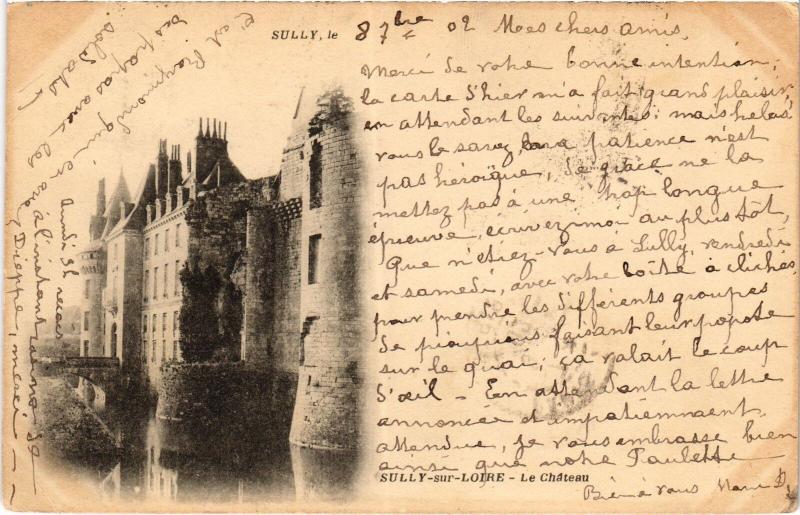 SULLY, le 8 7bre 02 Mes chers amis,
Merci de votre bonne intention;
la carte d'hier m'a fait grand plaisir,
en attendant les suivantes; mais helas!
vous le savez, ma patience n'est
pas héroïque, de grâce ne la
mettez pas à une trop longue
épreuve, écrivez-moi au plus tôt,
Que n'étiez-vous à Sully, vendredi
et samedi, avec votre boîte à clichés,
pour prendre les différents groupes
de pioupious faisant leur popote
sur le quai; ça valait le coup
d'œil - En attendant la lettre
annoncée et impatiemment
attendue, je vous embrasse bien
ainsi que notre Paulette
SULLY-sur-LOIRE - Le Château
Bien à vous Marie D.
c'est Raymond qui
des popas avec les
soldats!
reçois à l'instant carte de
Dieppe, merci